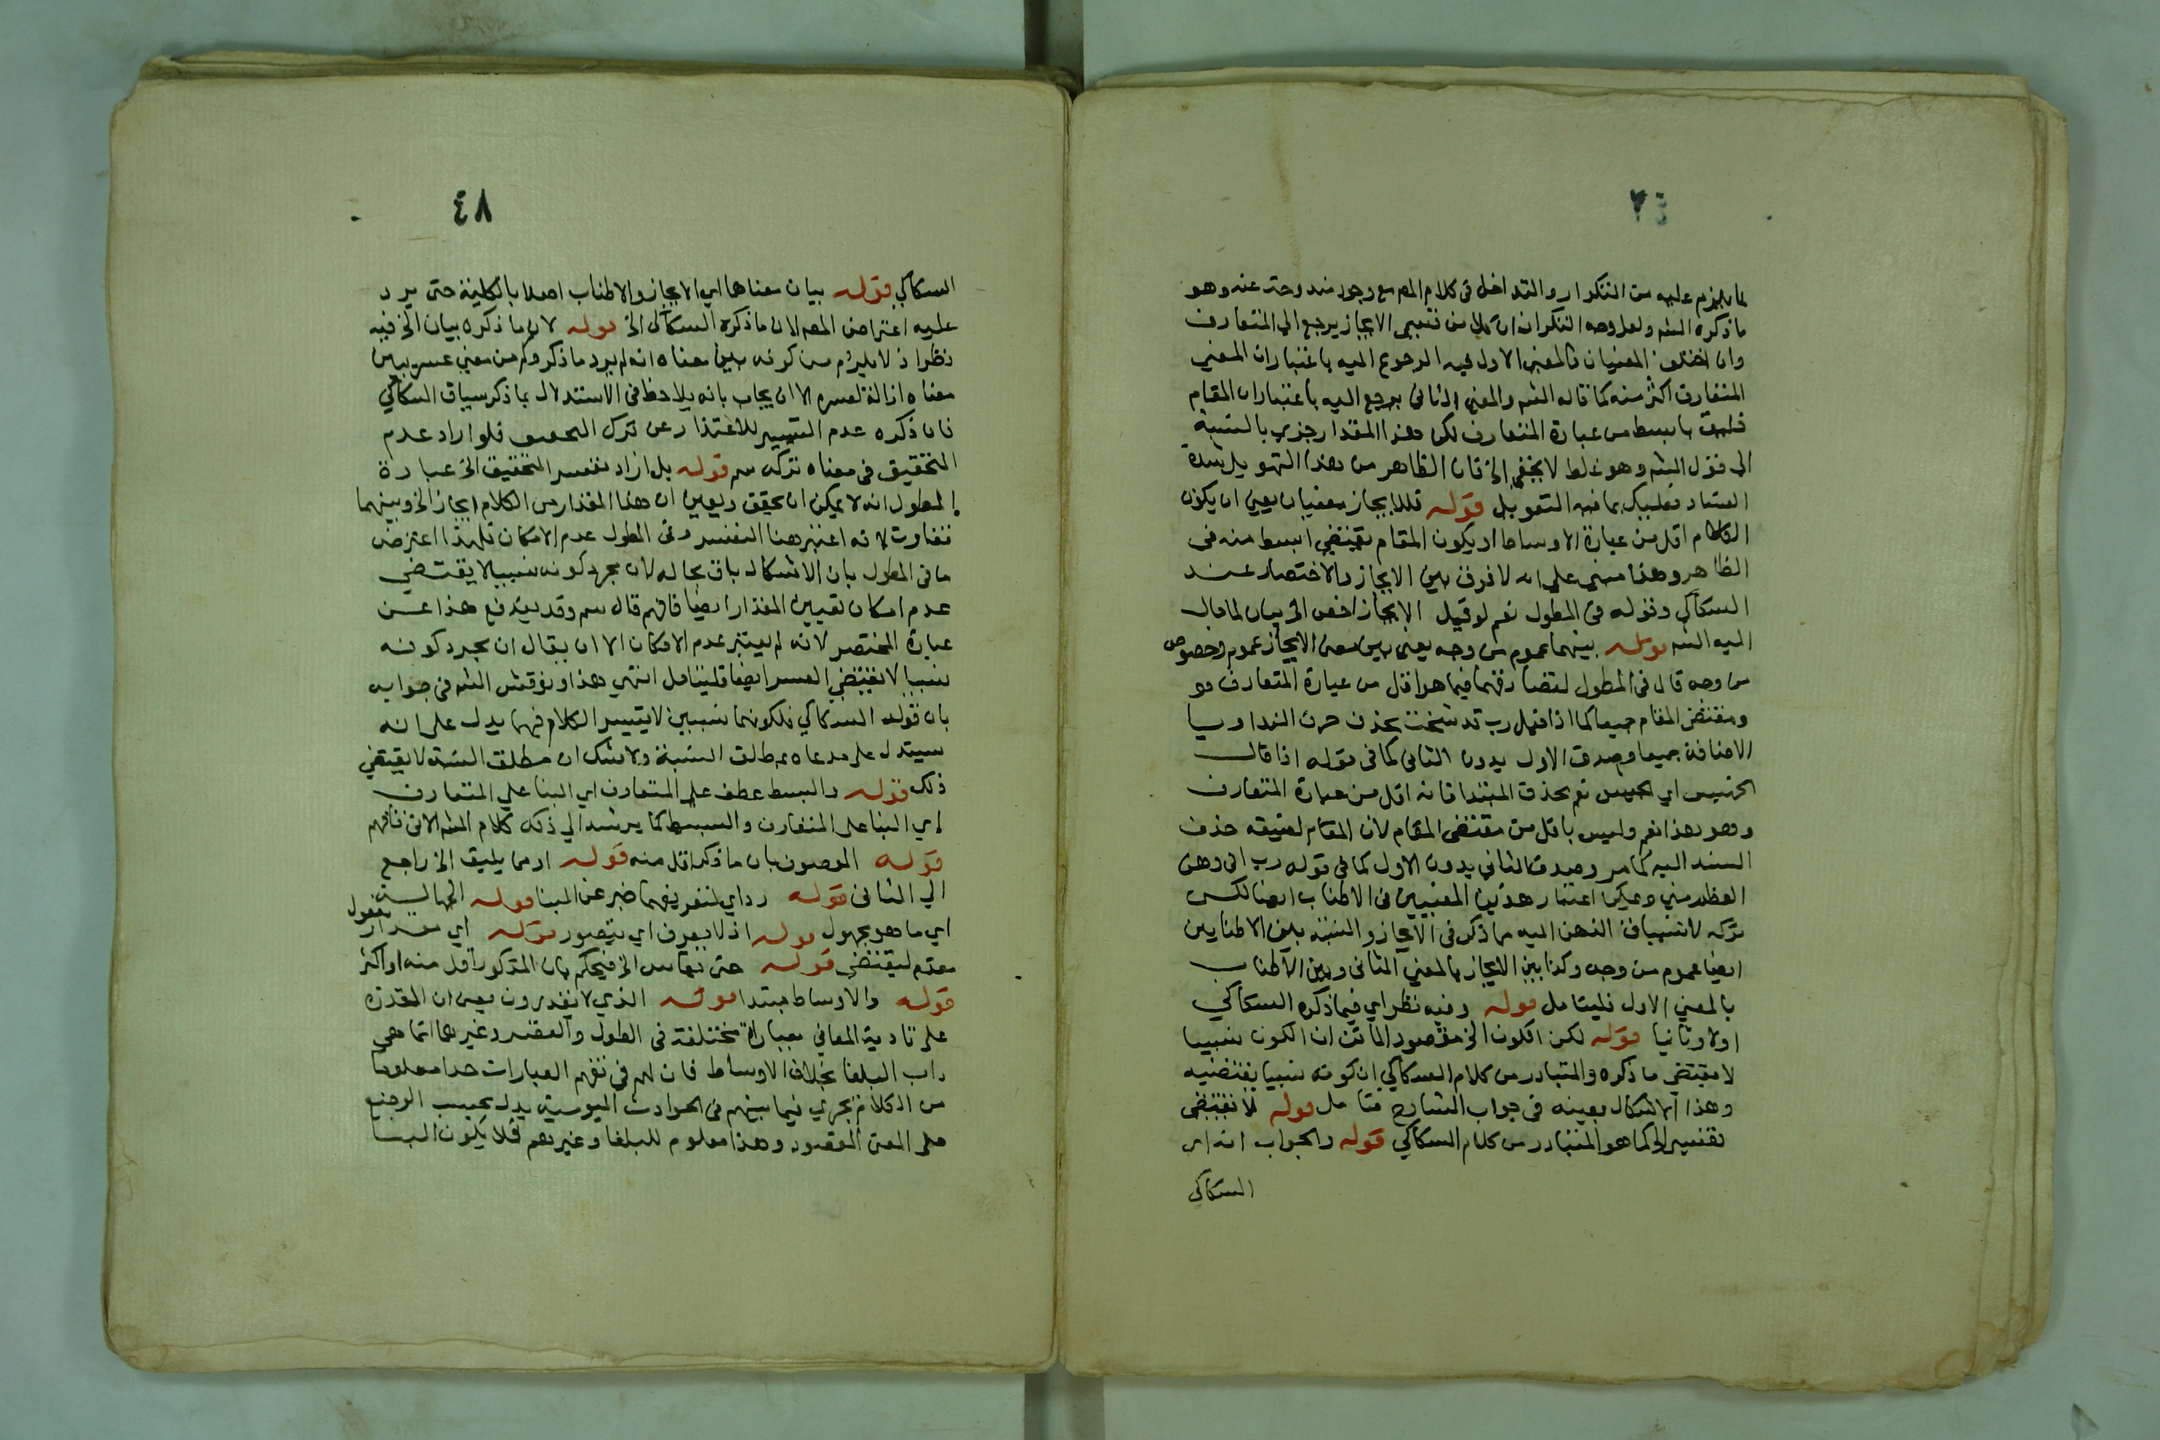 لما يلزم عليه من التكرار والتداخل فى كلام المصـ مع وجود مندوحة عنه وهو
ما ذكره الشـ ولعل وجه التكرار ان كلا من تفسيرى الايجاز يرجع الى المتعارف
وان اختلف المعنيان فالمعنى الاول فيه الرجوع اليه باعتبار ان المعنى
المتعارف اكثر منه كما قاله الشـ والمعنى الثانى يرجع اليه باعتبار ان المقام
خليق بابسط من عبارة المتعارف لكن هذا المقدار جزى بالنسبة
الى قول الشـ وهو غلط لا يخفى الخ فان الظاهر من هذا التهويل شدة
الفساد فعليك بما فيه التعويل قوله فللايجاز معنيان يعنى ان يكون
الكلام اقل من عبارة الاوساط او يكون المقام يقتضى ابسط منه فى
الظاهر وهذا مبنى على انه لا فرق بين الايجاز والاختصار عند
السكاكى وقوله فى المطول نعم لو قيل الايجاز اخص الخ بيان لما مال
اليه الشـ قوله بينهما عموم من وجه يعنى بين معنى الايجاز عموم وخصوص
من وجه قال فى المطول لتصادقهما فيما هو اقل من عبارة المتعارف
ومقتضى المقام جميعا كما اذا قيل رب قد شخت بحذف حرف الندا ويا
الاضافة جميعا وصدق الاول بدون الثانى كما فى قوله اذا قال
الخميس اى نعم بحذف المبتدا فانه اقل من عبارة المتعارف
وهو هذا نعم وليس باقل من مقتضى المقام لان المقام لضيقه حذف
المسند اليه كما مر وصدق الثانى بدون الاول كما فى قوله رب انى وهن
العظم منى ويمكن اعتبار هذين المعنيين فى الاطناب ايضا لكن
تركه لانسياق الذهن اليه مما ذكر فى الايجاز والنسبة بين الاطنابين
ايضا عموم من وجه وكذا بين الايجاز بالمعنى الثانى وبين الاطناب
بالمعنى الاول فليتامل قوله وفيه نظر اى فيما ذكره السكاكي
اولا وثانيا قوله لكن الكون الخ مقصود الماتن ان الكون نسبيا
لا يقتضى ما ذكره والمتبادر من كلام السكاكي ان كونه نسبيا يقتضيه
وهذا الاشكال بعينه فى جواب الشارح فتامل قوله لا تقتضى
تفسير الخ كما هو المتبادر من كلام السكاكي قوله والجواب انه اى
السكاكي
٤٨
السكاكي قوله بيان معناها اى الايجاز والاطناب اصلا بالكلية حتى يرد
عليه اعتراض المصـ الان ما ذكره السكاكى الخ قوله لان ما ذكره بيان الخ فيه
نظر اذ لا يلزم من كونه بين معناه انه لم يرد ما ذكر وكم من معنى عسر يبين
معناه ازالة لعسره الا ان يجاب بانه يلاحظ فى الاستدلال بما ذكر سياق السكاكي
فان ذكره عدم التيسير للاعتذار عن ترك التحقيق فلو اراد عدم
التحقيق فى معناه تركه سم قوله بل اراد تعسر التحقيق الخ عبارة
المطول انه لا يمكن ان يحقق ويعين ان هذا المقدار من الكلام ايجاز الخ وبينهما
تفاوت لانه اعتبر هنا التعسر وفى المطول عدم الامكان فلهذا اعترض
ما فى المطول بان الاشكال باق بحاله لان مجرد كونه نسبيا لا يقتضي
عدم امكان تعيين المقدار ايضا فافهم قال سم وقد يندفع هذا عن
عبارة المختصر لانه لم يعتبر عدم الامكان الا ان يقال ان مجرد كونه
نسبيا لا يقتضي العسر ايضا فليتامل انتهى هذا ونوقش الشـ فى جوابه
بان قوله السكاكي فلكونهما نسبيين لا يتيسر الكلام فيهما يدل على انه
سيتدل على مدعاه بمطلق النسبة ولا شك ان مطلق النسبة لا يقتضي
ذلك قوله والبسط عطف على المتعارف اى البنا علي المتعارف
اى البنا على المتعارف والبسط كما يرشد الي ذلك كلام الشـ الاتى فافهم
قوله الموصوف بان ما ذكر اقل منه قوله او مما يليق الخ راجع
الي الثانى قوله رد اى لتعريفهما خبر عن البنا قوله الجهالة
اى ما هو مجهول قوله اذ لا يعرف اى يتصور قوله اى مقدار
مفعول
مقدم ليقتضي قوله حتى يقاس الخ فيحكم بان المذكور اقل منه او اكثر
قوله والاوساط مبتدا قوله الذي لا يقدرون يعنى ان المقدرة
على تادية المعاني بعبارات مختلفة فى الطول والقصر وغيرهما انما هى
داب البلغا بخلاف الاوساط فان لهم فى تفهم العبارات حدا معلوما
من الكلام يجري فيما بينهم فى الحوادث اليومية يدل بحسب الوضع
على المعنى المقصود وهذا معلوم للبلغا وغيرهم فلا يكون البنا